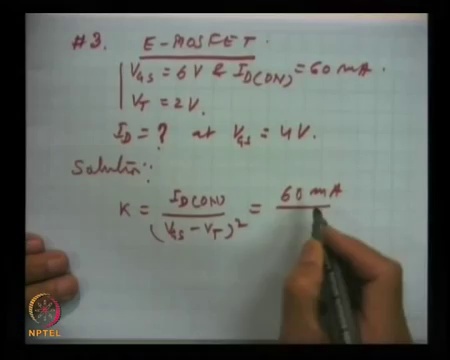 #3. E-MOSFET.
V_GS = 6V & I_D(ON) = 60 mA.
V_T = 2V.
I_D = ? at V_GS = 4V.
Solution:
K = I_D(ON) / (V_GS - V_T)^2 = 60 mA
NPTEL